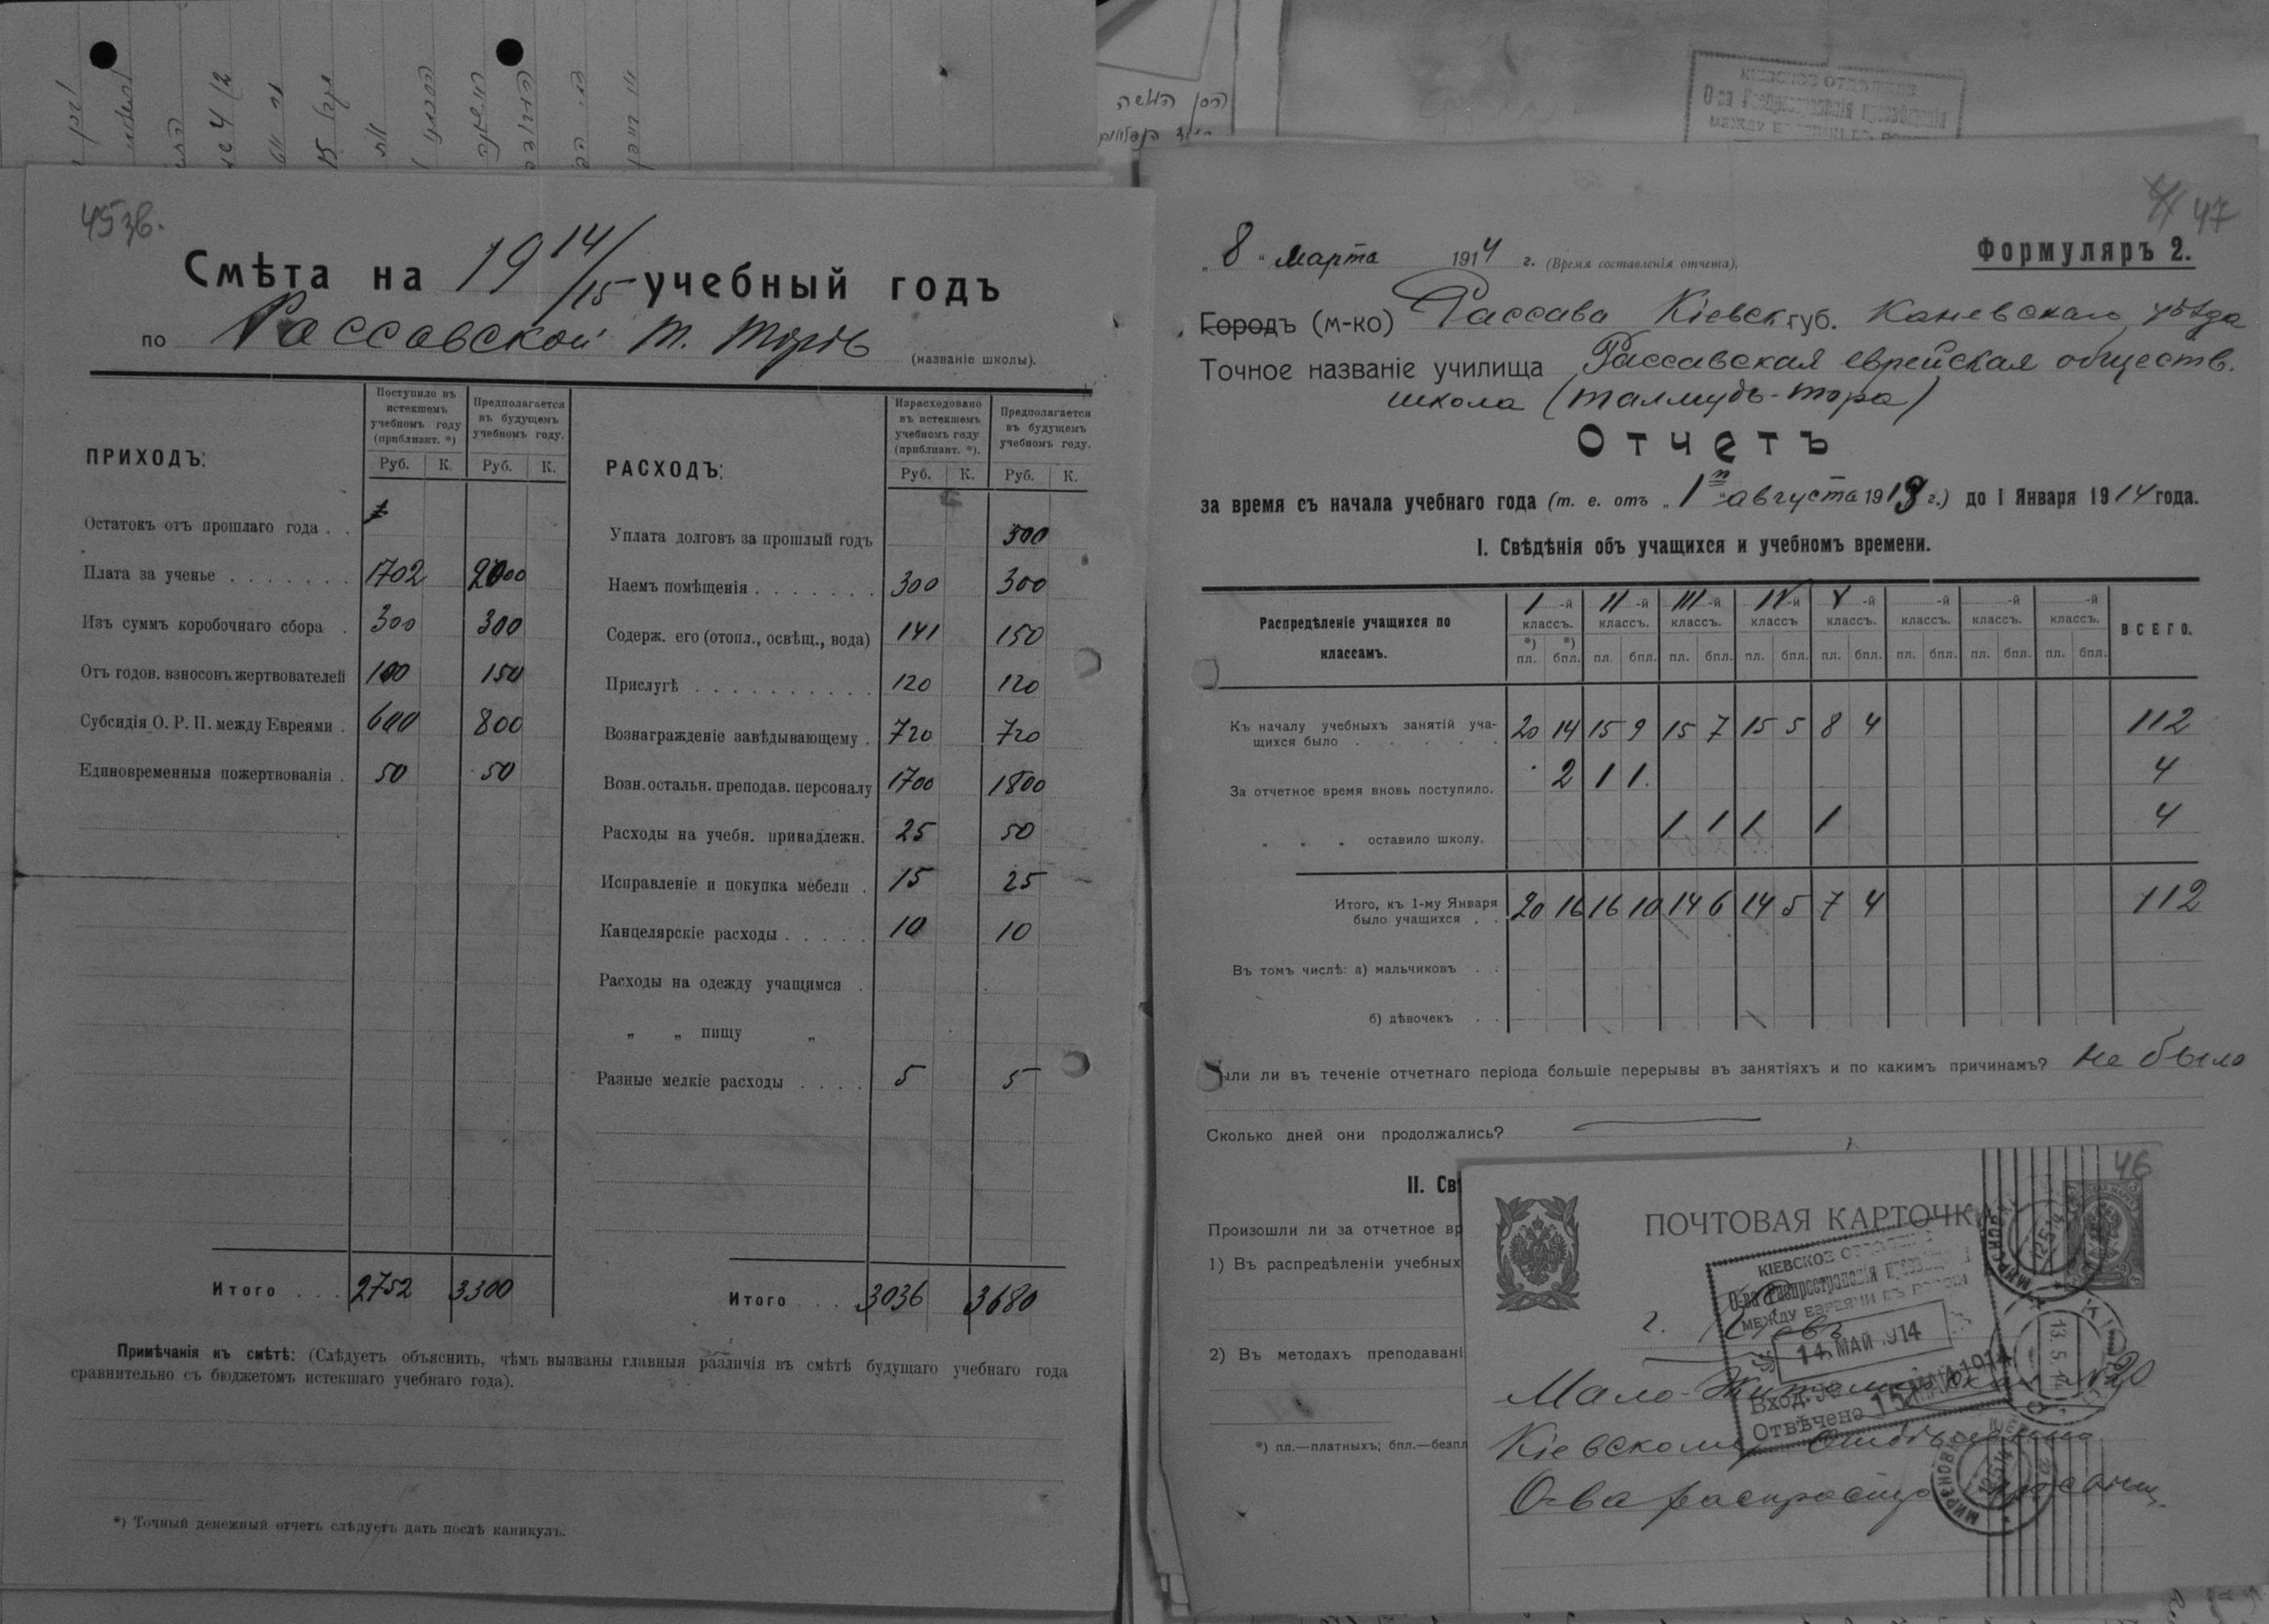 45 зв.
Смѣта на 19 14/15 учебный годъ
по Рассавской т. торѣ (названіе школы).
ПРИХОДЪ:
Поступило въ истекшемъ учебномъ году (приблизит. *)
Предполагается въ будущемъ учебномъ году.
Руб. К. Руб. К.
Остатокъ отъ прошлаго года . .
Плата за ученье . . . . . . . 1702 2000
Изъ суммъ коробочнаго сбора . 300 300
Отъ годов. взносовъ жертвователей 100 150
Субсидія О. Р. П. между Евреями . 600 800
Единовременныя пожертвованія . 50 50
Итого . . . 2752 3300
РАСХОДЪ:
Израсходовано въ истекшемъ учебномъ году (приблизит. *).
Предполагается въ будущемъ учебномъ году.
Руб. К. Руб. К.
Уплата долговъ за прошлый годъ 500
Наемъ помѣщенія . . . . . . . 300 300
Содерж. его (отопл., освѣщ., вода) 141 150
Прислугѣ . . . . . . . . . . 120 120
Вознагражденіе завѣдывающему . 720 720
Возн. остальн. преподав. персоналу 1700 1800
Расходы на учебн. принадлежн. 25 50
Исправленіе и покупка мебели . 15 25
Канцелярскіе расходы . . . . . 10 10
Расходы на одежду учащимся .
„ „ пищу „
Разные мелкіе расходы . . . . 5 5
Итого . . . 3036 3680
Примѣчанія къ смѣтѣ: (Слѣдуетъ объяснить, чѣмъ вызваны главныя различія въ смѣтѣ будущаго учебнаго года
сравнительно съ бюджетомъ истекшаго учебнаго года).
*) Точный денежный отчетъ слѣдуетъ дать послѣ каникулъ.
47
„ 8 " Марта 1914 г. (Время составленія отчета).
Формуляръ 2.
Городъ (м-ко) Рассава Кіевск губ. Каневскаго уѣзда
Точное названіе училища Рассавская еврейская обществ.
школа (талмудъ-тора)
Отчетъ
за время съ начала учебнаго года (т. е. отъ „ 1го августа 1913 г.) до 1 Января 1914 года.
I. Свѣдѣнія объ учащихся и учебномъ времени.
Распредѣленіе учащихся по классамъ.
I-й классъ. II-й классъ. III-й классъ. IV-й классъ V-й классъ. -й классъ. -й классъ. -й классъ. ВСЕГО.
*) пл. *) бпл. пл. бпл. пл. бпл. пл. бпл. пл. бпл. пл. бпл. пл. бпл. пл. бпл.
Къ началу учебныхъ занятій уча-
щихся было . . . . . . 20 14 15 9 15 7 15 5 8 4 112
За отчетное время вновь поступило. 2 1 1 4
„ „ „ оставило школу. 1 1 1 1 4
Итого, къ 1-му Января
было учащихся . . 20 16 16 10 14 6 14 5 7 4 112
Въ томъ числѣ: а) мальчиковъ . .
б) дѣвочекъ . .
ыли ли въ теченіе отчетнаго періода большіе перерывы въ занятіяхъ и по какимъ причинамъ? не было
Сколько дней они продолжались?
II. Св
Произошли ли за отчетное вр
1) Въ распредѣленіи учебных
2) Въ методахъ преподавані
*) пл.—платныхъ; бпл.—безпл
46
ПОЧТОВАЯ КАРТОЧК
КІЕВСКОЕ ОТДѢЛЕНІЕ
О-ва Распространенія просвѣщенія
МЕЖДУ ЕВРЕЯМИ ВЪ РОССІИ
14 МАЙ 1914
Вход. №
Отвѣчено 15 МАЙ 1914
г. Кіевъ
Мало-Житомірская №20
Кіевскому Отдѣленію
О-ва распростр просвѣщ.
13.5.14
МИРОНОВКА